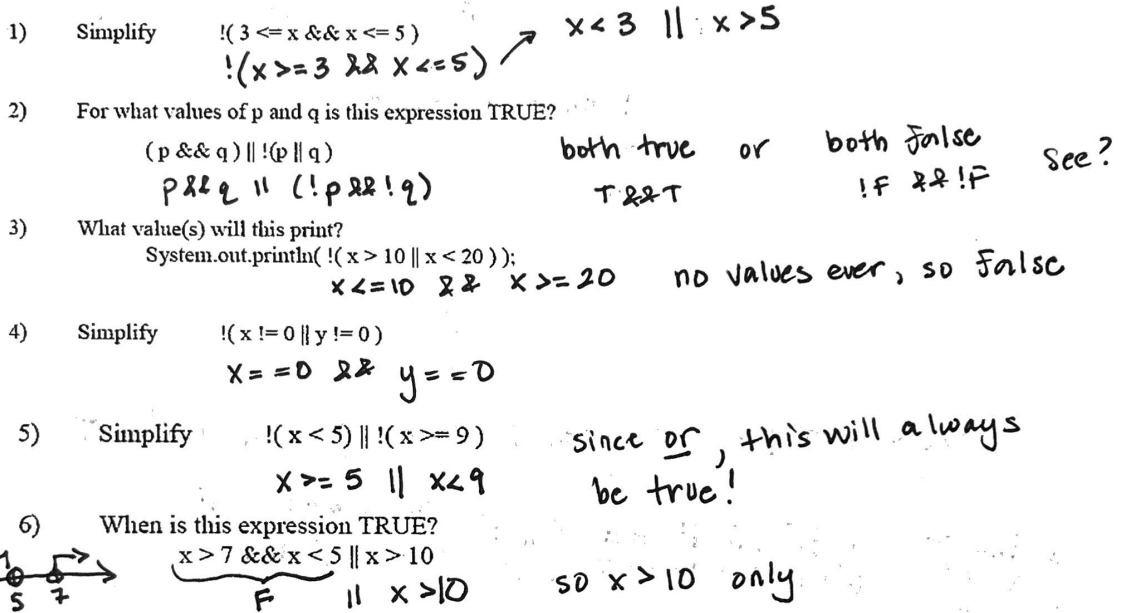 1) Simplify !( 3 <= x && x <= 5 ) x < 3 || x > 5
!(x >= 3 && x <= 5)
2) For what values of p and q is this expression TRUE?
( p && q ) || !(p || q ) both true or both false See?
p && q || (!p && !q) T && T !F && !F
3) What value(s) will this print?
System.out.println( !( x > 10 || x < 20 ) );
x <= 10 && x >= 20 no values ever, so false
4) Simplify !( x != 0 || y != 0 )
x == 0 && y == 0
5) Simplify !( x < 5) || !( x >= 9 ) since or, this will always
x >= 5 || x < 9 be true!
6) When is this expression TRUE?
x > 7 && x < 5 || x > 10
5 7 F || x > 10 so x > 10 only